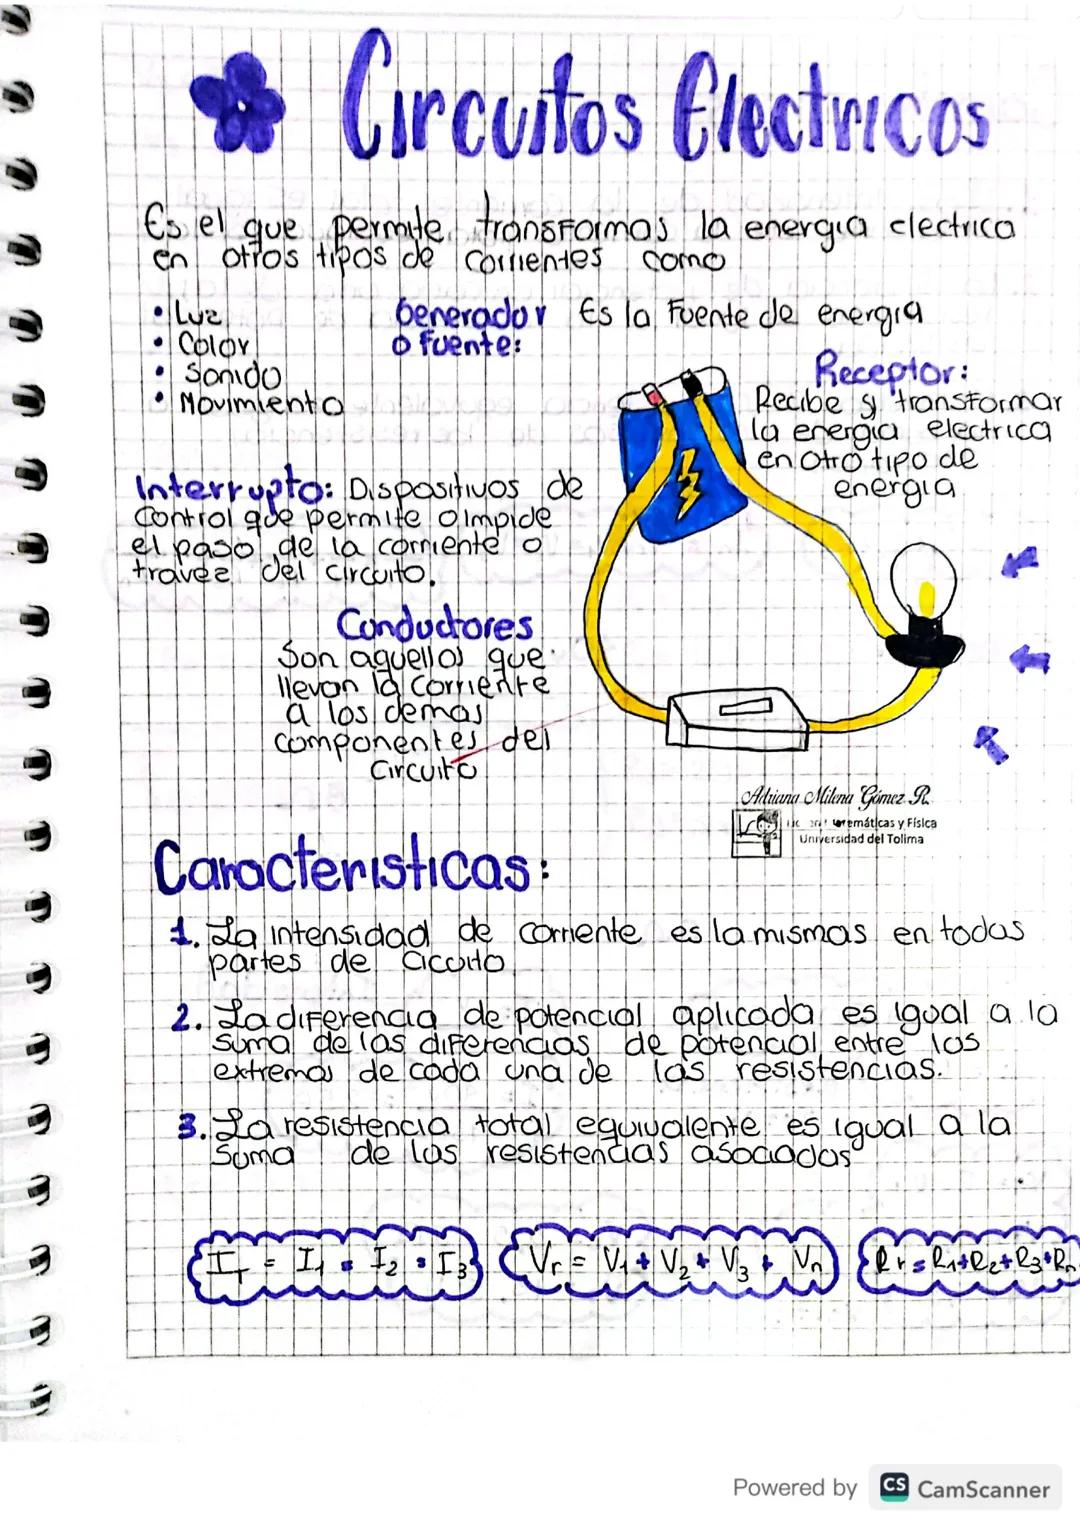 Circuitos Electricos
Es el que permite transformas la energia electrica
en otros tipos de corrientes como
• Luz
• Color
• Sonido
• Movimiento
Generador Es la Fuente de energia
o fuente:
Receptor:
Recibe y transformar
la energia electrica
en otro tipo de
energia
Interrupto: Dispositivos de
Control que permite o impide
el paso de la corriente o
travez del circuito.
Conductores
Son aquellos que
llevan la corriente
a los demas
componentes del
Circuito
Adriana Milena Gómez R.
Matemáticas y Física
Universidad del Tolima
Caracteristicas:
1. La intensidad de corriente es la mismas en todas
partes de cicuito
2. La diferencia de potencial aplicada es igual a la
suma de las diferencias de potencial entre los
extremos de cada una de las resistencias.
3. La resistencia total equivalente es igual a la
suma de las resistencias asociadas
I_T = I_1 = I_2 = I_3 V_r = V_1 + V_2 + V_3 + V_n R_r = R_1+R_2+R_3+R_n
Powered by CS CamScanner